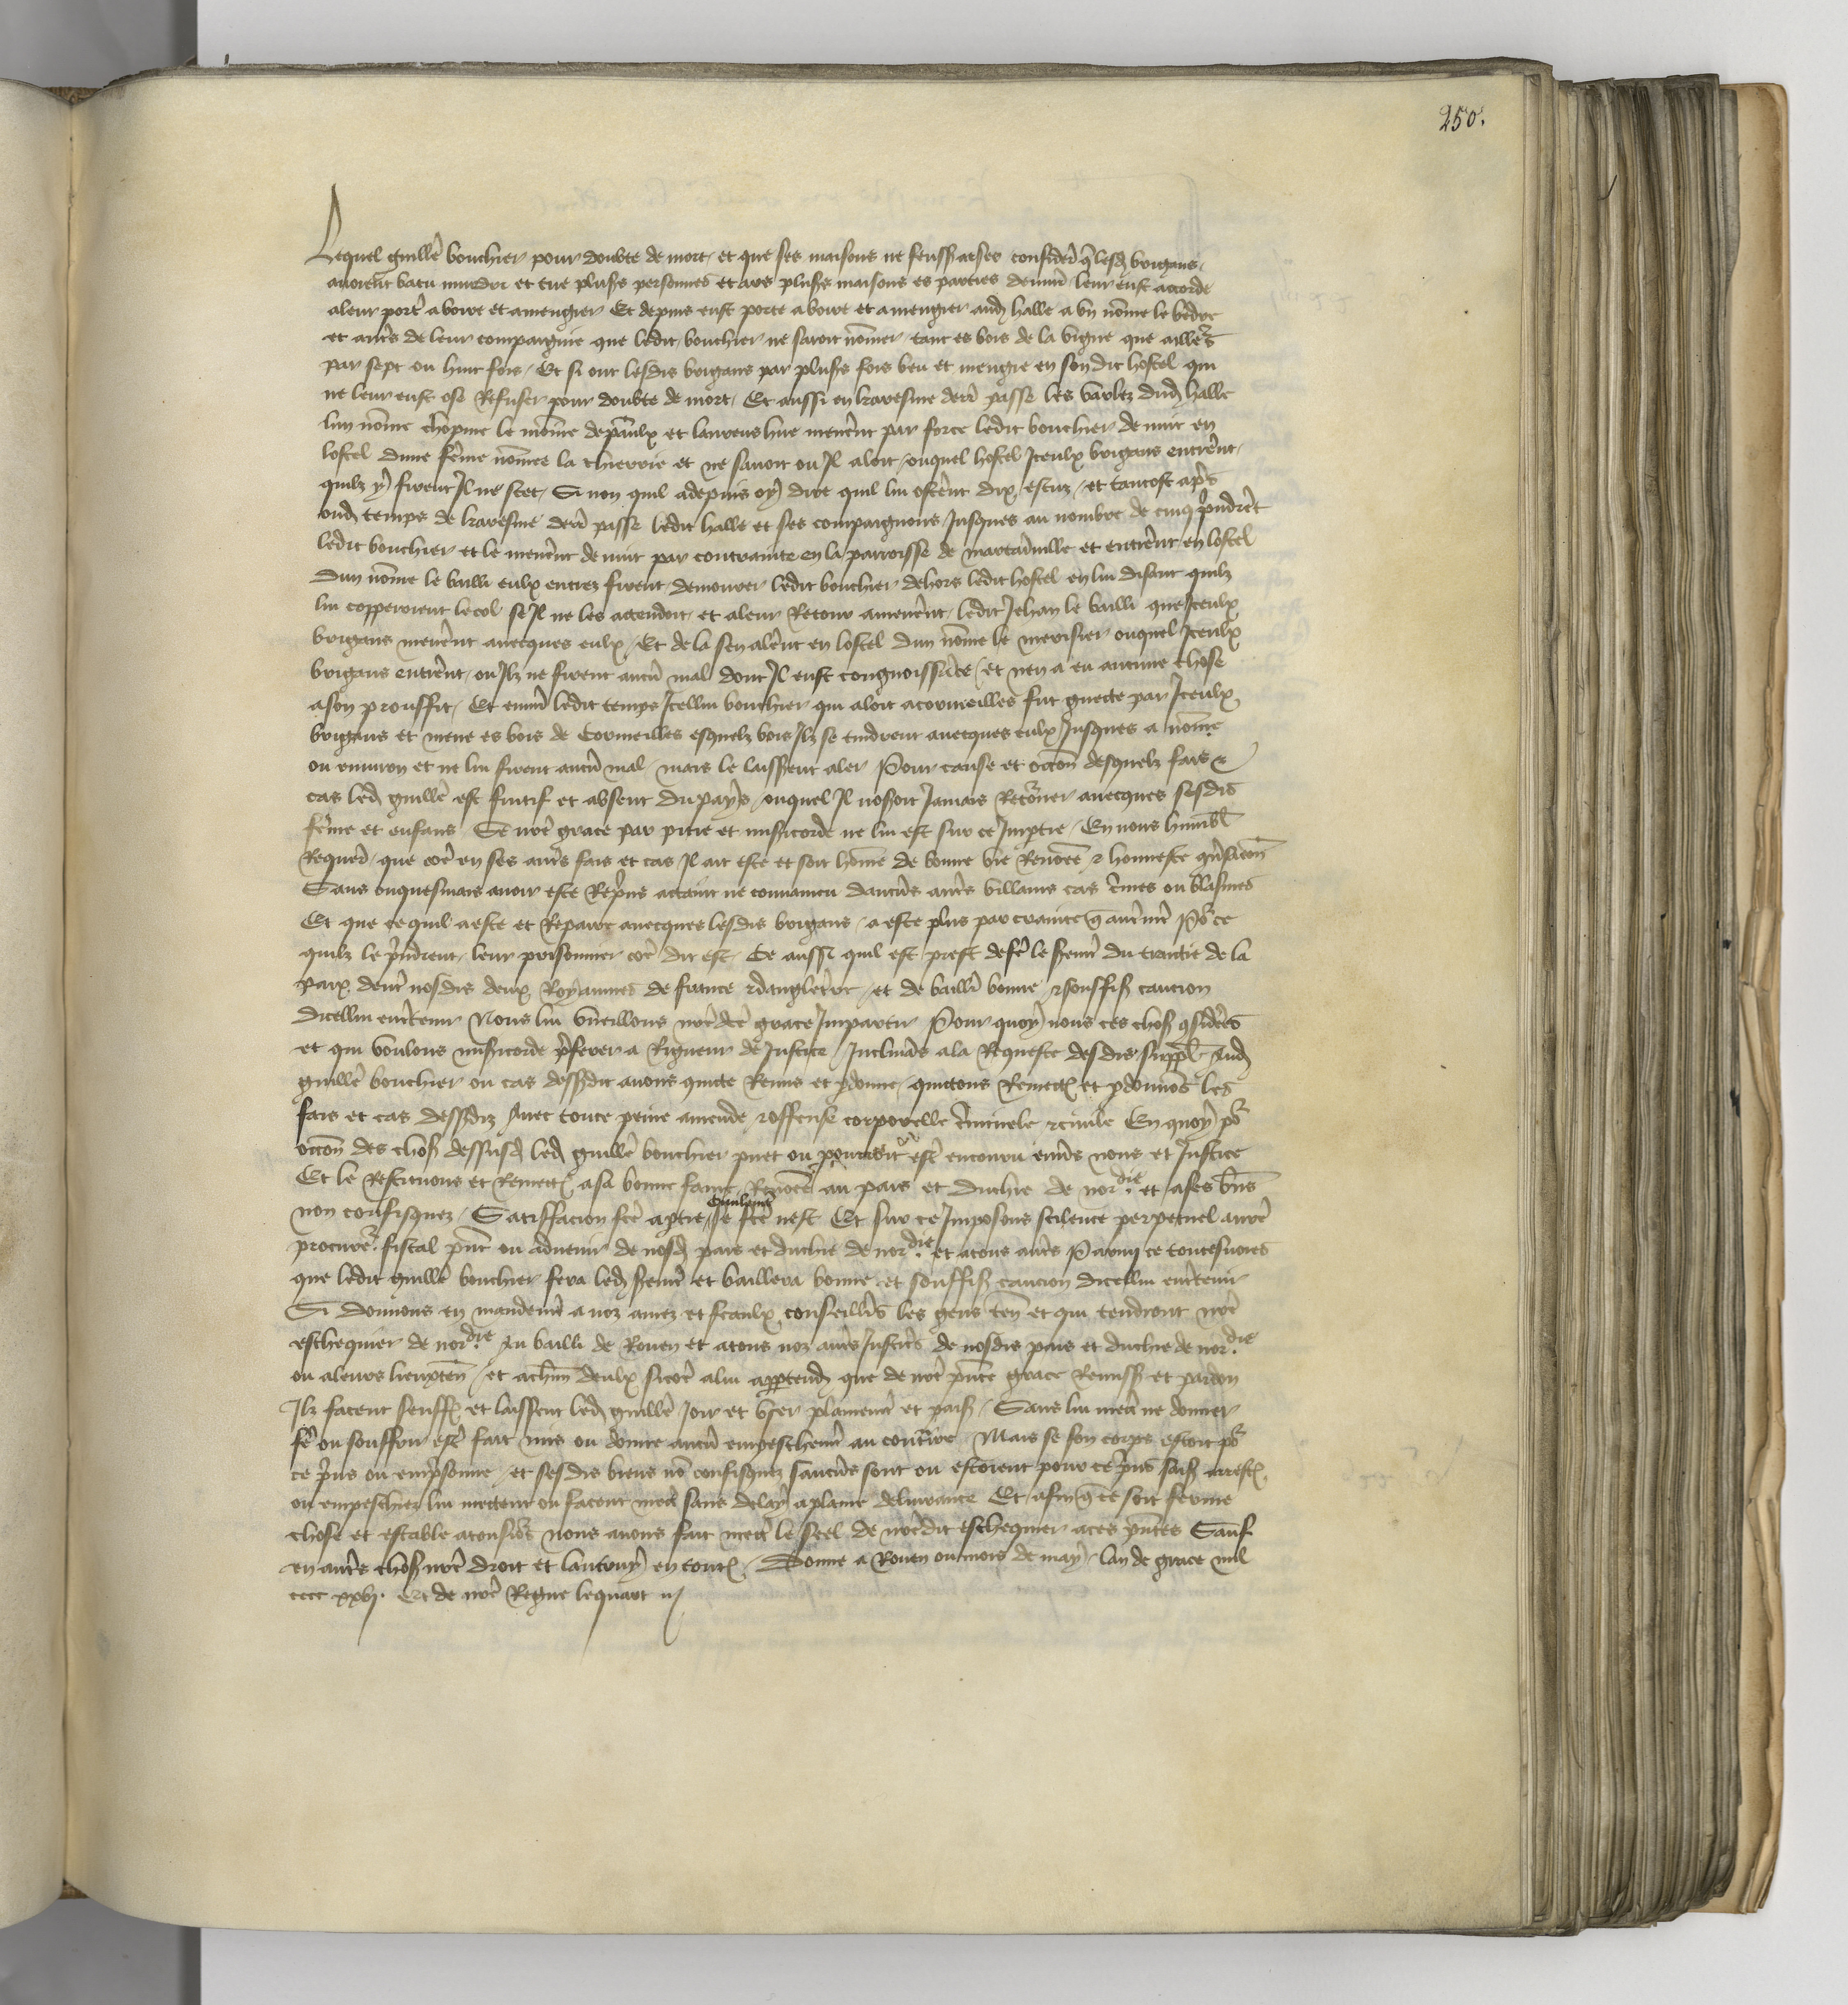 250.
Lequel guille bouchier pour doubte de mort et que ses maisons ne feuss arses consider q lesd brigans
avoient batu murdri et tue pluss personnes et ars pluss maisons es parties denviro leur eust accorde
a leur porter a boire et a mengier Et depuis eust porte a boire et a mengier aud halle a un nomme le
et autres de leur compaignie que ledit bouchier ne savoit nomer tant es bois de la vigne que ailles
par sept ou huit fois Et si ont lesdis brigans par pluss fois beu et mengie en son dit hostel qui
ne leur eust ose Refuser pour doubte de mort Et aussi en karesme derr passe les varlez dud halle
lun nome chopine le moine de praulx et laurens hue menerent par force ledit bouchier de nuit en
lostel dune feme nomee la thierrie et ne savoit ou Il aloit ouquel hostel Iceulx brigans entrerent
quilz y firent Il ne scet Si non quil a depuis oy dire quil lui osterent dix escuz et tantost apres
oud temps de karesme derr passe ledit halle et ses compaignons Jusques au nombre de cinq prindret
ledit bouchier et le menerent de nuit par contrainte en la parroisse de martainville et entrerent en lostel
dun nome le bailli eulx entrez firent demourer ledit bouchier dehors ledit hostel en lui disant quilz
lui copperoient le col se Il ne les attendoit et a leur Retour amenerent ledit Jehan le bailli que Iceulx
brigans menerent avecques eulx Et de la sen alerent en lostel dun nome le merisier ouquel Iceulx
brigans entrerent ou Ilz ne firent aucun mal dont Il eust congnoissance et nen a eu aucune chose
a son prouffit Et environ ledit temps Icellui bouchier qui aloit a cormeilles fut guette par Iceulx
brigans et mene es bois de Cormeilles esquelz bois Ilz se tindrent avecques eulx Jusques a nonne
ou environ et ne lui firent aucun mal mais le laissent aler Pour cause et occon desquelz fais &
cas led guille est fuitif et absent du pays ouquel Il noseroit Jamais Retorner avecques sesdis
feme et enfans Se nre grace par pitie et misicorde ne lui est sur ce Imptie En nous humbl
Requer que come en ses autres fais et cas Il ait este et soit home de bonne vie Renomee & honneste quersacion
Sans onquesmais avoir este Reprins attaint ne convaincu daucuns autres villains cas crimes ou blasmes
Et que ce quil a este et Repaire avecques lesdis brigans a este plus par crainte q autremt Por ce
quilz le prindrent leur prisonnier come dit est Et aussi quil est prest de fe le sermt du traitie de la
paix dentre nosdis deux Royaumes de france & dangleterre et de bailler bonne & souffiss caucion
dicellui entretenir Nous lui vueillons nredce grace Impartir Pour quoy nous ces choss qsiderees
et qui voulons misicorde preferer a Rigueur de Justice Inclinans a la Requeste desdis suppl aud
guille bouchier ou cas dessusdit avons quicte Remis et pdonne quictons Remett et pdonnos les
fais et cas dessusdiz avec toute peine amende & offense corporelle criminele & civile En quoy por
occon des choss dessusd led guille bouchier puet ou pourroit estre encouru envers nous et Justice
Et le Restituons et Remett a sa bonne fame Renomee au pais et duchie de nordie et a ses biens
non confisquez Satiffacion fce a ptie civilemt se fce nest Et sur ce Imposons scilence perpetuel a nre
procureur fiscal pnt ou advenir de nosd pais et duchie de nordie et a tous autres Parmy ce toutesvoies
que ledit guille bouchier fera led sermt et baillera bonne et souffiss caucion dicellui entretenir
Si donnons en mandemt a noz amez et feaulx conseilliers les gens ten et qui tendront nre
eschequier de nordie au bailli de Rouen et a tous noz autres Justiciers de nosdis pais et duchie de nordie
ou a leurs lieuxten et a chun deulx sicome a lui apptend que de nre pnte grace Remiss et pardon
Ilz facent seuff et laissent led guille Joir et user plainemt et paiss Sans lui mectre ne donner
fe ou souffrir estre fait mis ou donne aucun empeschemt au contraire Mais se son corps estoit por
ce prins ou emprisonne et sesdis biens no confisquez saucuns sont ou estoient pour ce prins saiss arrest
ou empeschiez lui mettent ou facent mectre sans delay a plaine delivrance Et afin q ce soit ferme
chose et estable a tousiors nous avons fait mectre le seel de nredit eschequier a ces pntes Sauf
en autres choss nre droit et lautruy en tout Donne a Rouen ou mois de may lan de grace mil
cccc xxvj. Et de nre Regne le quart